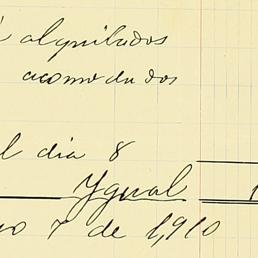 alquilados
acomodados
l dia 8
Ygual 1
o 7 de 1,910